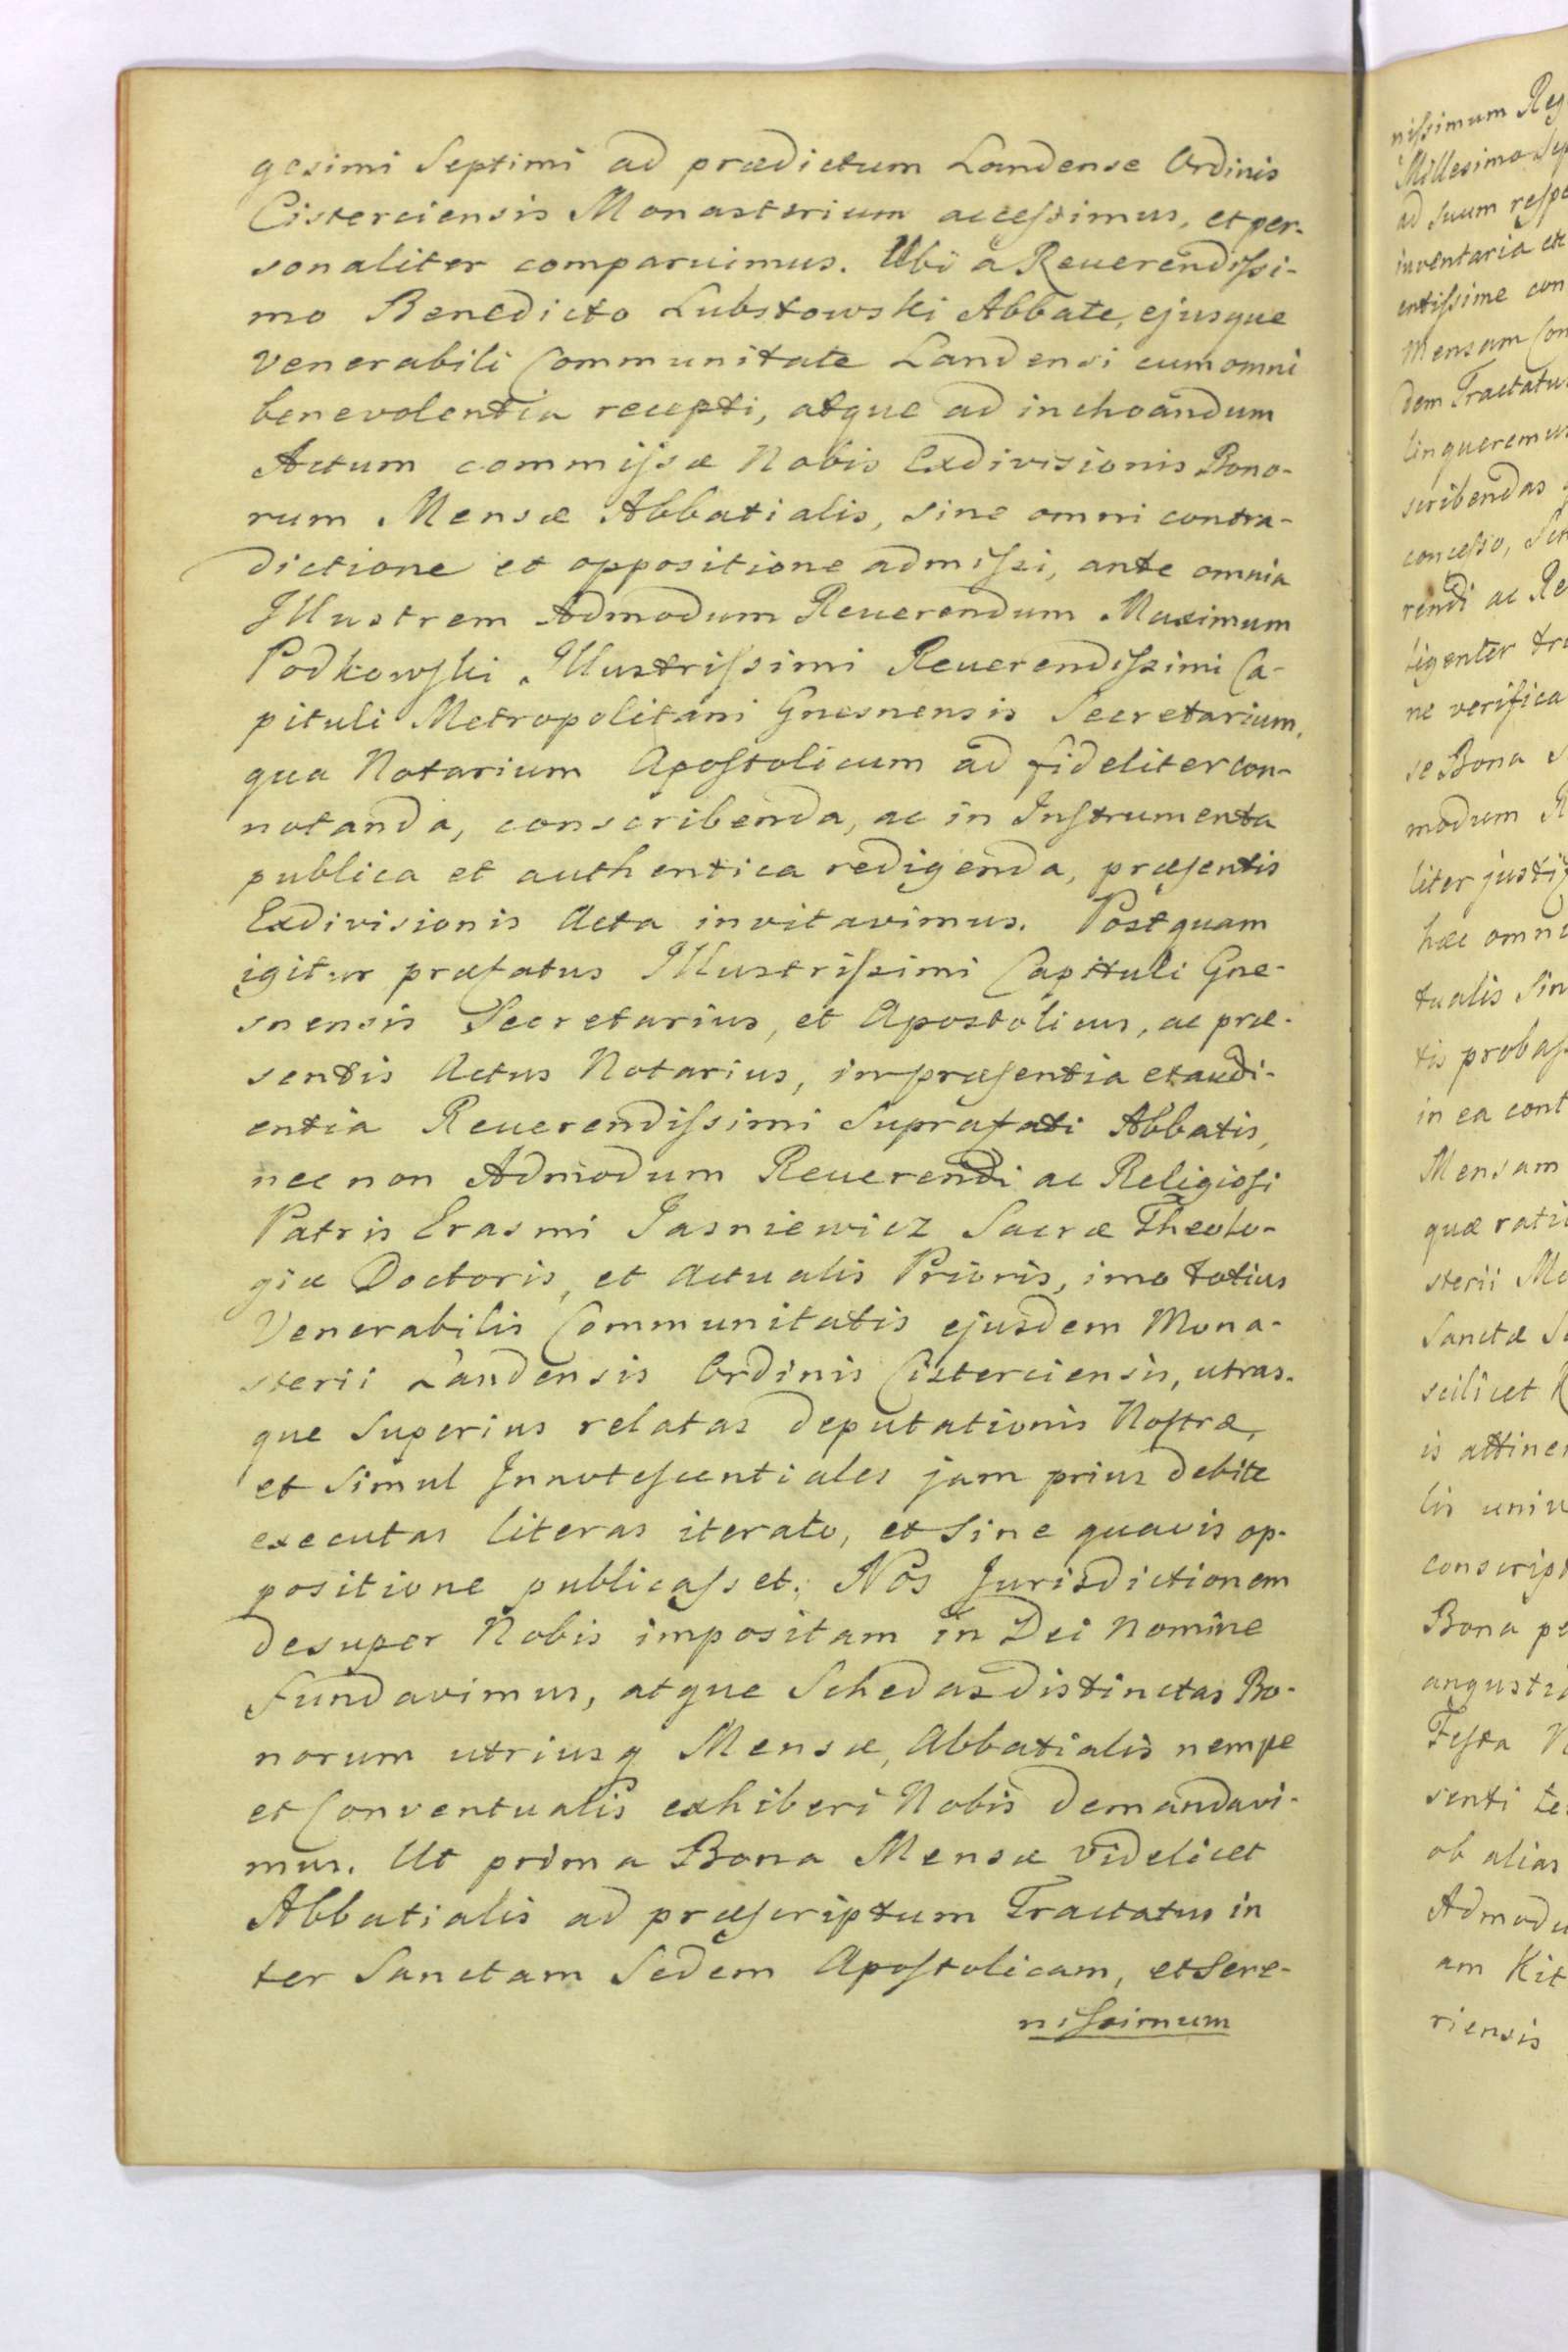 gesimi Septimi ad prædictum Landense Ordinis
Cisterciensis Monasterium accessimus, et per-
sonaliter comparuimus. Ubi a Reuerendissi-
mo Benedicto Lubstowski Abbate, ejusque
Venerabili Communitate Landensi cum omni
benevolentia recepti, atque ad inchoandum
Actum commissæ Nobis Exdivisionis Bono-
rum Mensæ Abbatialis, sine omni contra-
dictione et oppositione admissi, ante omnia
Illustrem Admodum Reuerendum Maximum
Podkowski, Illustrissimi Reuerendissimi Ca-
pituli Metropolitani Gnesnensis Secretarium,
qua Notarium Apostolicum ad fideliter con-
notanda, conscribenda, ac in Instrumenta
publica et authentica redigenda, præsentis
Exdivisionis Acta invitavimus. Postquam
igitur præfatus Illustrissimi Capituli Gne-
snensis Secretarius, et Apostolicus, ac præ-
sentis Actus Notarius, in præsentia et audi-
entia Reuerendissimi Suprafati Abbatis,
nec non Admodum Reuerendi ac Religiosi
Patris Erasmi Jasniewicz Sacræ Theolo-
giæ Doctoris, et Actualis Prioris, imo totius
Venerabilis Communitatis ejusdem Mona-
sterii Landensis Ordinis Cisterciensis, utras-
que Superius relatas deputationis Nostræ,
et simul Innotescentiales jam prius debite
executas literas iterato, et Sine quavis op-
positione publicasset. Nos Jurisdictionem
desuper Nobis impositam in Dei Nomine
fundavimus, atque Schedas distinctas Bo-
norum utriusq Mensæ, Abbatialis nempe
et Conventualis exhiberi Nobis demandavi-
mus. Ut prima Bona Mensæ videlicet
Abbatialis ad præscriptum Tractatus in
ter Sanctam Sedem Apostolicam, et Sere-
nissimum
nissimum Reg
Millesimo Sep
ad suum respe
inventaria et
entissime con
Mensam Con
dem Tractatu
linqueremus
scribendas
concesso,
rendi ac Re
ligenter tra
ne verifica
se Bona
modum R
liter justi
hæc omni
tualis Sin
tis probas
in ea cont
Mensam
quæ rati
sterii Me
Sanctæ
scilicet
is attine
lis univ
conscrip
Bona pe
angusti
Festa
senti te
ob alias
Admodu
am Kit
riensis